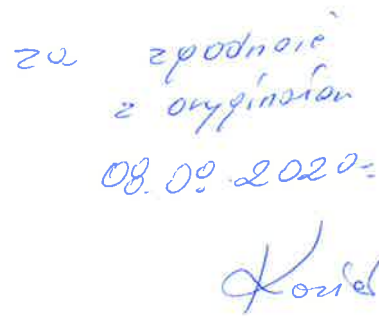 za zgodność
z oryginałem
08.09.2020r